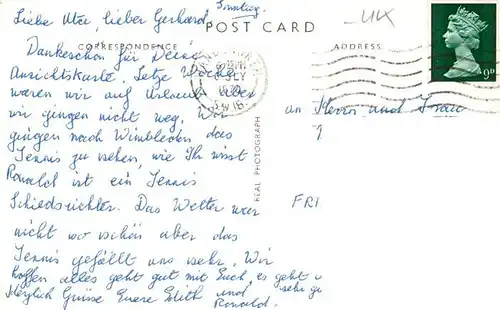 Sonntag.
Liebe Ute, lieber Gerhard,
POST CARD
UK
CORRESPONDENCE
ADDRESS
Dankeschön für Deine
Ansichtskarte, Letze Woche
waren wir auf Urlaub aber
wir gingen nicht weg. Wir
gingen nach Wimbledon das
Tennis zu sehen, wie Ihr wisst
Ronald ist ein Tennis
Schiedsrichter. Das Wetter war
nicht so schön aber das
Tennis gefällt uns sehr. Wir
hoffen alles geht gut mit Euch, es geht u
sehr gu
Herzlich Grüsse Euere Edith und
Ronald.
REAL PHOTOGRAPH
JLY
S.W.19.
9D
an Herrn und Frau
FRI